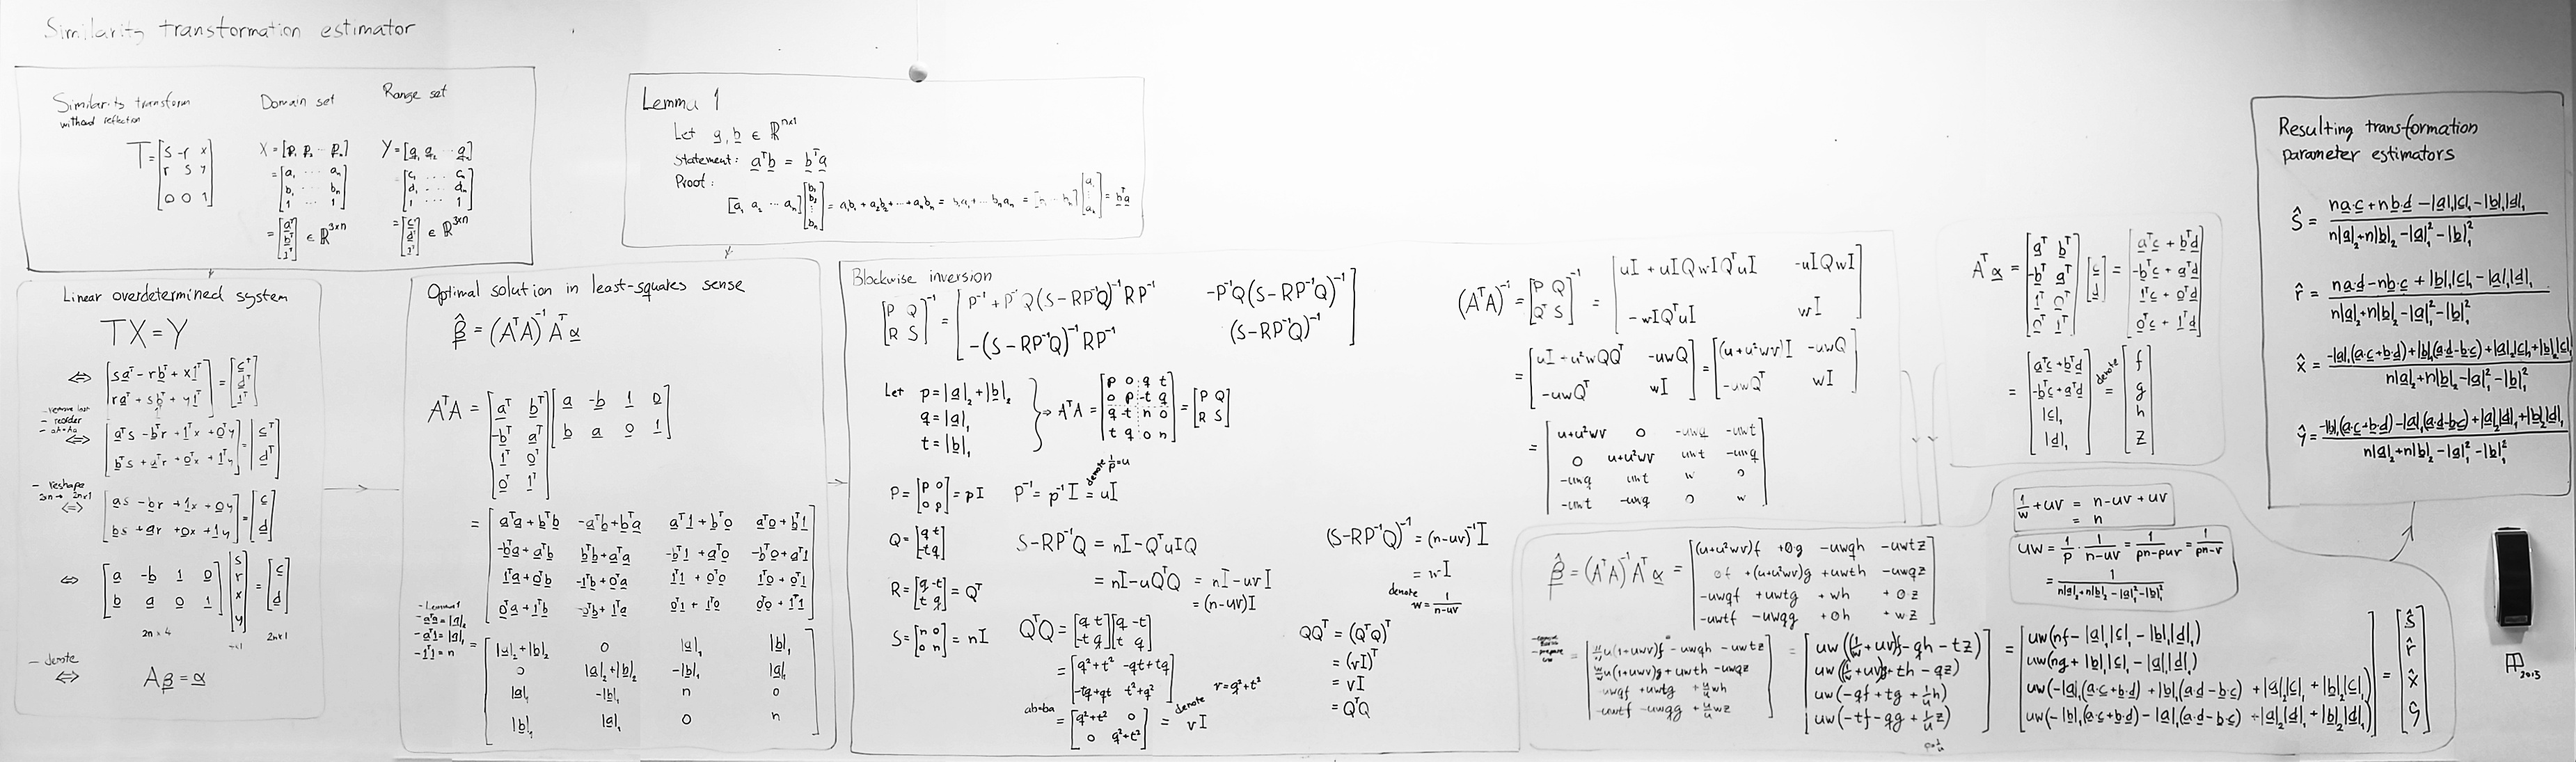 Similarity transformation estimator
Similarity transform
without reflection
T = [s -r x
r s y
0 0 1]
Domain set
X = [p₁ p₂ ⋯ pₙ]
= [a₁ ⋯ aₙ
b₁ ⋯ bₙ
1 ⋯ 1]
= [aᵀ
bᵀ
1ᵀ] ∈ ℝ³ˣⁿ
Range set
Y = [q₁ q₂ ⋯ qₙ]
= [c₁ ⋯ cₙ
d₁ ⋯ dₙ
1 ⋯ 1]
= [cᵀ
dᵀ
1ᵀ] ∈ ℝ³ˣⁿ
Lemma 1
Let a, b ∈ ℝⁿˣ¹
Statement: aᵀb = bᵀa
Proof:
[a₁ a₂ ⋯ aₙ][b₁ b₂ ⋮ bₙ] = a₁b₁ + a₂b₂ + ⋯ + aₙbₙ = b₁a₁ + ⋯ bₙaₙ = [b₁ ⋯ bₙ][a₁ ⋮ aₙ] = bᵀa
Linear overdetermined system
TX = Y
⇔ [saᵀ - rbᵀ + x1ᵀ
raᵀ + sbᵀ + y1ᵀ] = [cᵀ
dᵀ
1ᵀ]
- remove last
- reorder
⇔ [aᵀs - bᵀr + 1ᵀx + 0ᵀy
bᵀs + aᵀr + 0ᵀx + 1ᵀy] = [cᵀ
dᵀ]
- reshape
2xn → 2nx1
⇔ [as - br + 1x + 0y
bs + ar + 0x + 1y] = [c
d]
⇔ [a -b 1 0
b a 0 1][s r x y] = [c
d]
2n × 4
4x1
2nx1
- denote
⇔ Aβ = α
Optimal solution in least-squares sense
β̂ = (AᵀA)⁻¹Aᵀα
AᵀA = [aᵀ bᵀ
-bᵀ aᵀ
1ᵀ 0ᵀ
0ᵀ 1ᵀ][a -b 1 0
b a 0 1]
= [aᵀa + bᵀb -aᵀb + bᵀa aᵀ1 + bᵀ0 aᵀ0 + bᵀ1
-bᵀa + aᵀb bᵀb + aᵀa -bᵀ1 + aᵀ0 -bᵀ0 + aᵀ1
1ᵀa + 0ᵀb -1ᵀb + 0ᵀa 1ᵀ1 + 0ᵀ0 1ᵀ0 + 0ᵀ1
0ᵀa + 1ᵀb -0ᵀb + 1ᵀa 0ᵀ1 + 1ᵀ0 0ᵀ0 + 1ᵀ1]
- Lemma 1
- aᵀa = |a|₂
- aᵀ1 = |a|₁
- 1ᵀ1 = n
= [|a|₂ + |b|₂ 0 |a|₁ |b|₁
0 |a|₂ + |b|₂ -|b|₁ |a|₁
|a|₁ -|b|₁ n 0
|b|₁ |a|₁ 0 n]
Blockwise inversion
[P Q
R S]⁻¹ = [P⁻¹ + P⁻¹Q(S - RP⁻¹Q)⁻¹RP⁻¹ -P⁻¹Q(S - RP⁻¹Q)⁻¹
-(S - RP⁻¹Q)⁻¹RP⁻¹ (S - RP⁻¹Q)⁻¹]
Let p = |a|₂ + |b|₂
q = |a|₁
t = |b|₁
⇒ AᵀA = [p 0 q t
0 p -t q
q -t n 0
t q 0 n] = [P Q
R S]
P = [p 0
0 p] = pI
P⁻¹ = p⁻¹I = uI
denote 1/p = u
Q = [q t
-t q]
R = [q -t
t q] = Qᵀ
S = [n 0
0 n] = nI
S - RP⁻¹Q = nI - QᵀuIQ
= nI - uQᵀQ = nI - uvI
= (n - uv)I
QᵀQ = [q -t
t q][q t
-t q]
= [q² + t² -qt + tq
-tq + qt t² + q²]
ab=ba
= [q² + t² 0
0 q² + t²] = vI
denote
v = q² + t²
(S - RP⁻¹Q)⁻¹ = (n - uv)⁻¹I
= wI
denote
w = 1/(n-uv)
QQᵀ = (QᵀQ)ᵀ
= (vI)ᵀ
= vI
= QᵀQ
(AᵀA)⁻¹ = [P Q
Qᵀ S]⁻¹ = [uI + uIQwIQᵀuI -uIQwI
-wIQᵀuI wI]
= [uI + u²wQQᵀ -uwQ
-uwQᵀ wI] = [(u + u²wv)I -uwQ
-uwQᵀ wI]
= [u+u²wv 0 -uwq -uwt
0 u+u²wv uwt -uwq
-uwq uwt w 0
-uwt -uwq 0 w]
Aᵀα = [aᵀ bᵀ
-bᵀ aᵀ
1ᵀ 0ᵀ
0ᵀ 1ᵀ][c
d] = [aᵀc + bᵀd
-bᵀc + aᵀd
1ᵀc + 0ᵀd
0ᵀc + 1ᵀd]
= [aᵀc + bᵀd
-bᵀc + aᵀd
|c|₁
|d|₁] denote = [f
g
h
z]
1/w + uv = n - uv + uv
= n
uw = 1/p · 1/(n-uv) = 1/(pn-puv) = 1/(pn-v)
= 1/(n|a|₂+n|b|₂-|a|₁²-|b|₁²)
β̂ = (AᵀA)⁻¹Aᵀα = [(u+u²wv)f +0g -uwqh -uwtz
0f +(u+u²wv)g +uwth -uwqz
-uwqf +uwtg +wh +0z
-uwtf -uwqg +0h +wz]
= [w/w u(1+uwv)f - uwqh - uwtz
w/w u(1+uwv)g + uwth - uwqz
-uwqf + uwtg + u/u wh
-uwtf - uwqg + u/u wz]
= [uw((1/w + uv)f - qh - tz)
uw((1/w + uv)g + th - qz)
uw(-qf + tg + 1/u h)
uw(-tf - qg + 1/u z)]
= [uw(nf - |a|₁|c|₁ - |b|₁|d|₁)
uw(ng + |b|₁|c|₁ - |a|₁|d|₁)
uw(-|a|₁(a·c+b·d) + |b|₁(a·d-b·c) + |a|₂|c|₁ + |b|₂|c|₁)
uw(-|b|₁(a·c+b·d) - |a|₁(a·d-b·c) + |a|₂|d|₁ + |b|₂|d|₁)] = [ŝ
r̂
x̂
ŷ]
Resulting transformation
parameter estimators
ŝ = (na·c + nb·d - |a|₁|c|₁ - |b|₁|d|₁) / (n|a|₂+n|b|₂-|a|₁²-|b|₁²)
r̂ = (na·d - nb·c + |b|₁|c|₁ - |a|₁|d|₁) / (n|a|₂+n|b|₂-|a|₁²-|b|₁²)
x̂ = (-|a|₁(a·c+b·d)+|b|₁(a·d-b·c)+|a|₂|c|₁+|b|₂|c|₁) / (n|a|₂+n|b|₂-|a|₁²-|b|₁²)
ŷ = (-|b|₁(a·c+b·d)-|a|₁(a·d-b·c)+|a|₂|d|₁+|b|₂|d|₁) / (n|a|₂+n|b|₂-|a|₁²-|b|₁²)
2013